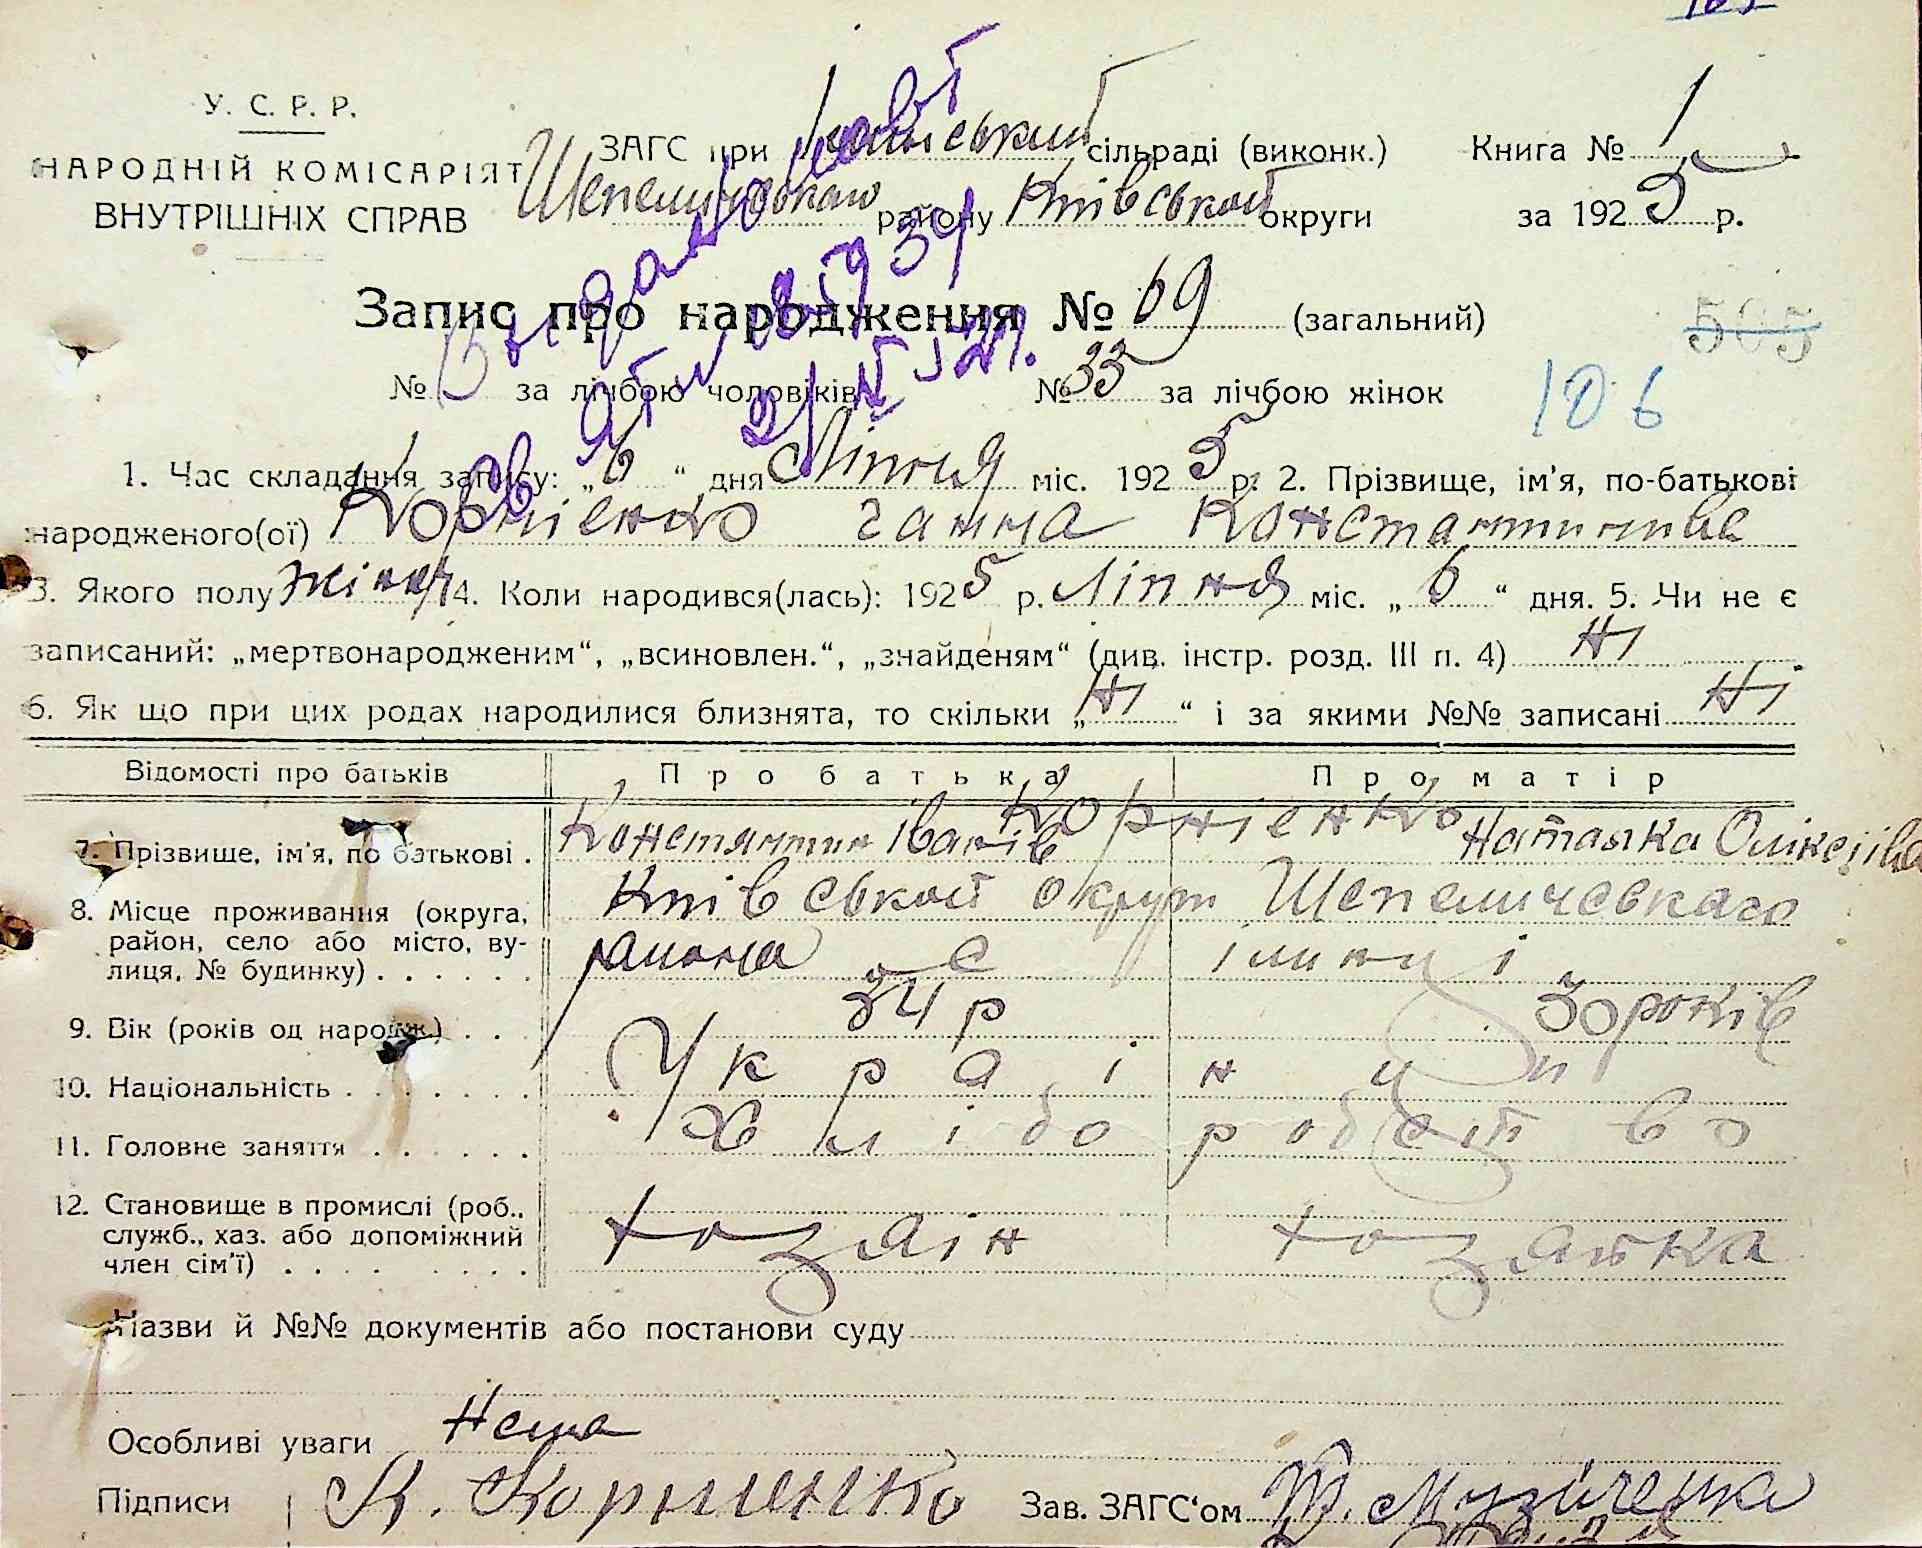 У. С. Р. Р.
НАРОДНІЙ КОМІСАРІЯТ
ВНУТРІШНІХ СПРАВ
ЗАГС при сільраді (виконк.)
Шепеличевскаго району Київськой округи
Книга № 1
за 1925 р.
Запис про народження № 69 (загальний)
505
№ за лічбою чоловіків № 33 за лічбою жінок
106
1. Час складання запису: „6“ дня Ліпня міс. 1925 р. 2. Прізвище, ім'я, по-батькові
народженого(ої) Корніенко ганна Констянтинивна
3. Якого полу жіноч 4. Коли народився(лась): 1925 р. Ліпня міс. „6“ дня. 5. Чи не є
записаний: „мертвонародженим“, „всиновлен.“, „знайденям“ (див. інстр. розд. III п. 4) Ні
6. Як що при цих родах народилися близнята, то скільки „Ні“ і за якими №№ записані Ні
Відомості про батьків Про батька Про матір
Корніенко
7. Прізвище, ім'я, по батькові . Констянтин Іванів Наталка Оліксіівна
8. Місце проживання (округа, район, село або місто, вулиця, № будинку) . . . . . . Київськой округи Шепеличевскаго
раиона с ілинці
9. Вік (років од народж.) . . 34 р 30 років
10. Національність . . . . . . . Украінци
11. Головне заняття . . . . . . Хліборобство
12. Становище в промислі (роб., служб., хаз. або допоміжний член сім'ї) . . . . . . . . хозяін хозяйка
Назви й №№ документів або постанови суду
Особливі уваги Нема
Підписи К. Корниенко Зав. ЗАГС'ом